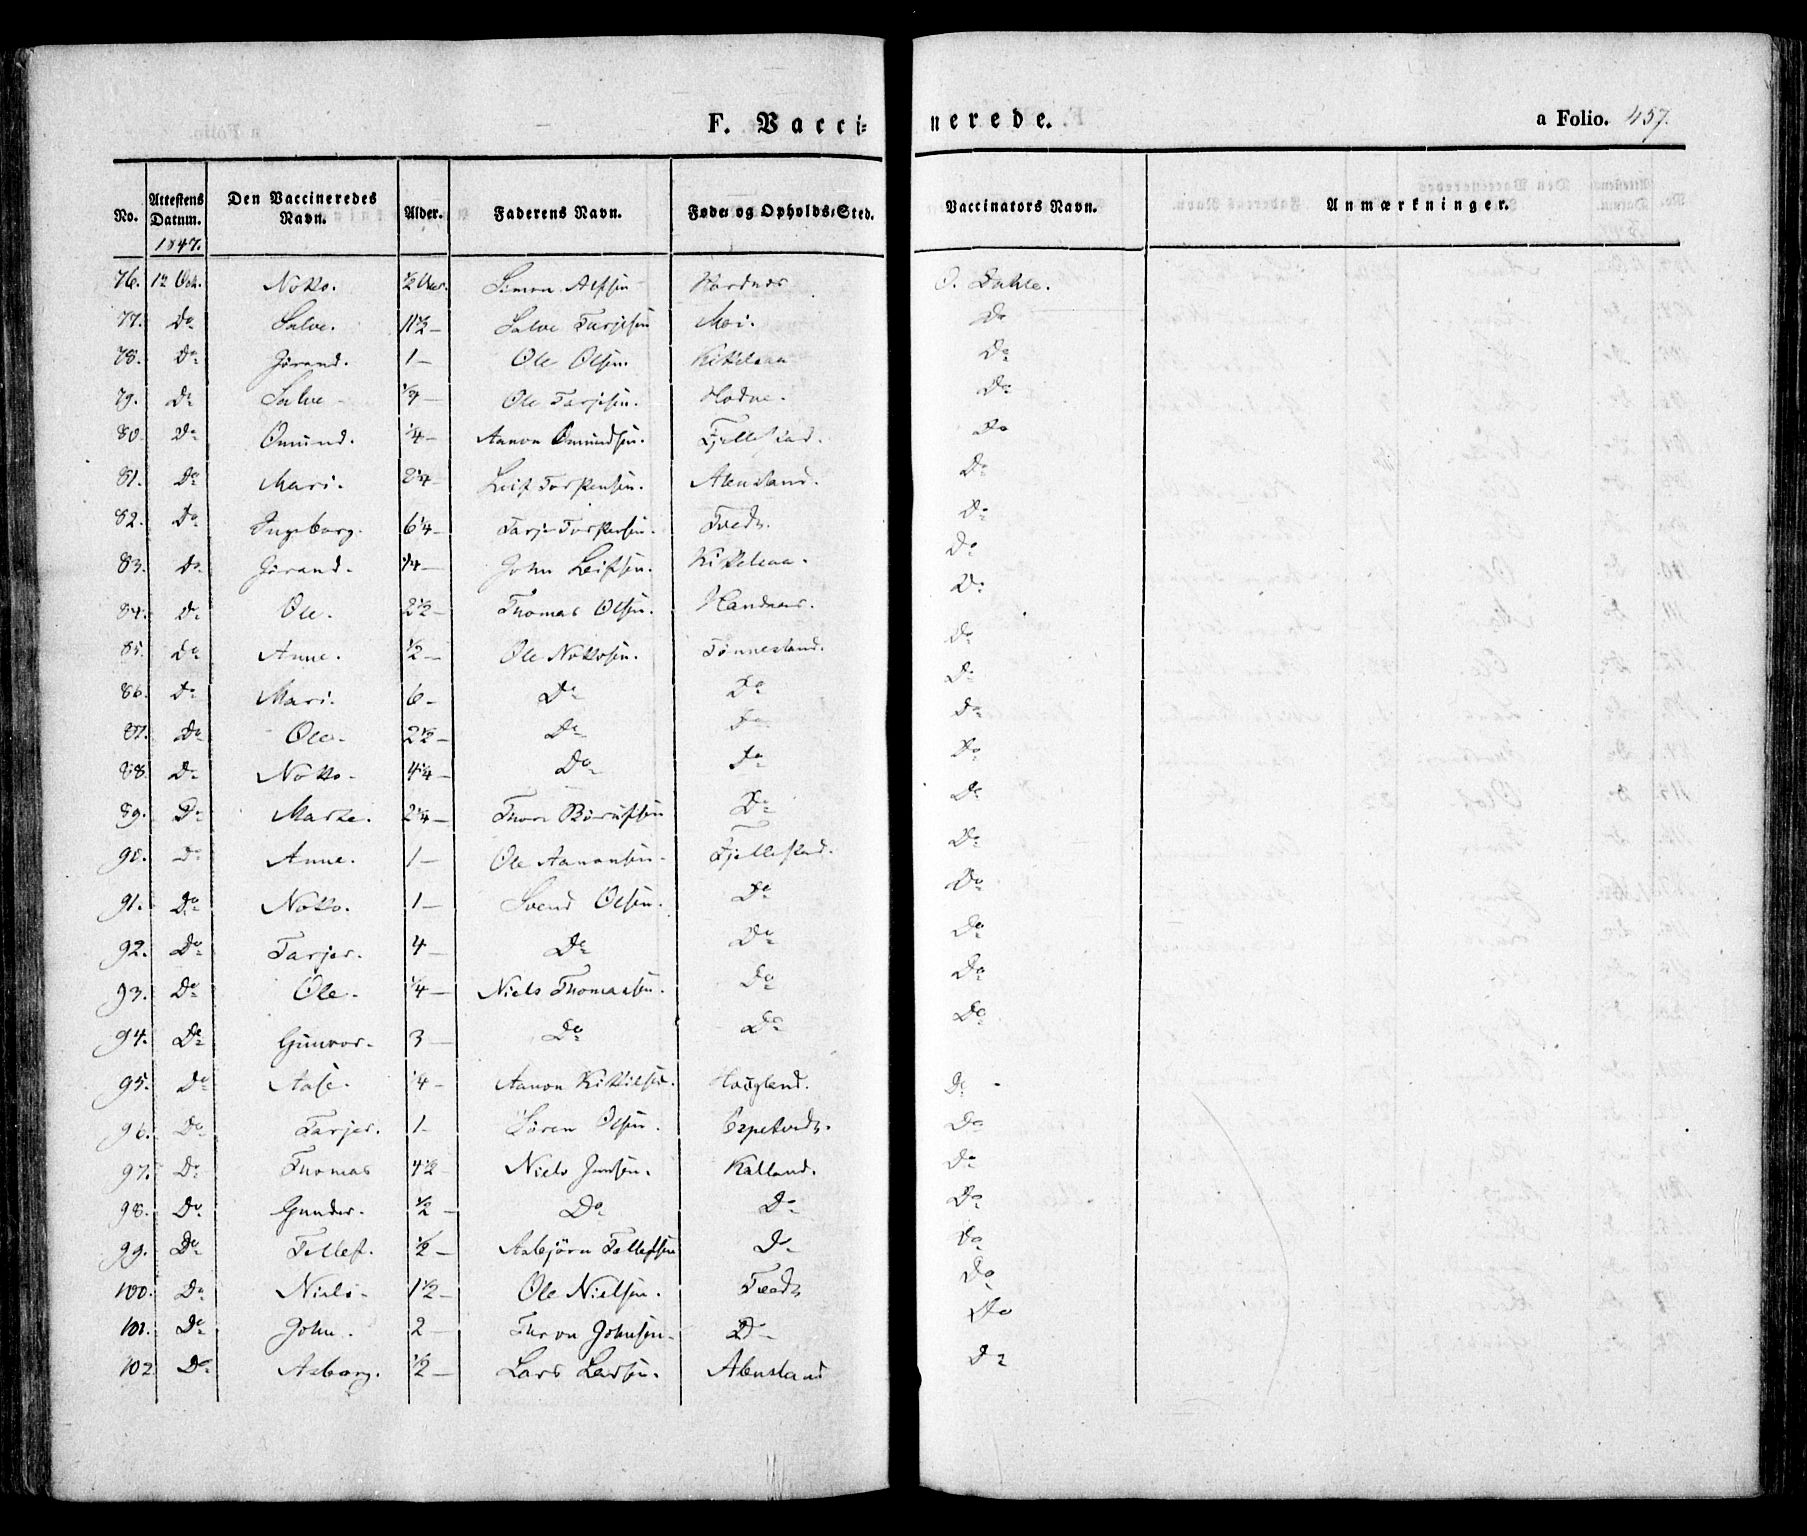 F. Vaccinerede. a Folio. 457.
No. Attestens Datum. 1847. Den Vaccineredes Navn. Alder. Faderens Navn. Føde- og Opholds-Sted. Vaccinators Navn. Anmærkninger.
76. 12 Oct. Notto. ½ Aar. Simon Alfsen O. Dahle.
77. Do Salve. 11½ — Salve Tarjesen Moi. Do
78. Do Jörand. 1 — Ole Olsen. Kittelsaa Do
79. Do Salve — Ole Tarjesen. Hodne. Do
80. Do Omund. ¼ — Aanon Omundsen. Fjellestad. Do
81. Do Mari. 2¼ — Leif Torkensen. Alensland. Do
82. Do Ingeborg. 6¼ — Tarje Torkersen. Tvedt. Do
83. Do Jörand. ¼ — John Leifsen. Kittelsaa. Do
84. Do Ole. 2½ — Thomas Olsen. Do
85. Do Anne. ½ — Ole Nottosen. Tönnesland. Do
86. Do Mari. 6 — Do Do Do
87. Do Ole. 2½ — Do Do Do
88. Do Notto. 4¼ — Do Do Do
89. Do Marte. 2¼ — Thore Do Do
90. Do Anne. 1 — Ole Aanonsen. Fjellestad. Do
91. Do Notto. 1 — Svend Olsen. Do Do
92. Do Tarjer. 4 — Do Do Do
93. Do Ole. ¼ — Niels Thomassen. Do Do
94. Do Gunvor. 3 — Do Do Do
95. Do Aase. ¼ — Aanon Kittilsen. Hougland. Do
96. Do Tarjer. 1 — Sören Olsen. Espetvedt. Do
97. Do Thomas 4½ — Niels Jensen. Kalland. Do
98. Do Gunder. ½ — Do Do Do
99. Do Tellef. ½ — Asbjörn Tellefsen Do Do
100. Do Niels. 1½ — Ole Nielsen. Tvedt Do
101. Do John. 2 — Johnsen Do Do
102 Do Asborg. ½ — Lars Larsen. Alensland Do